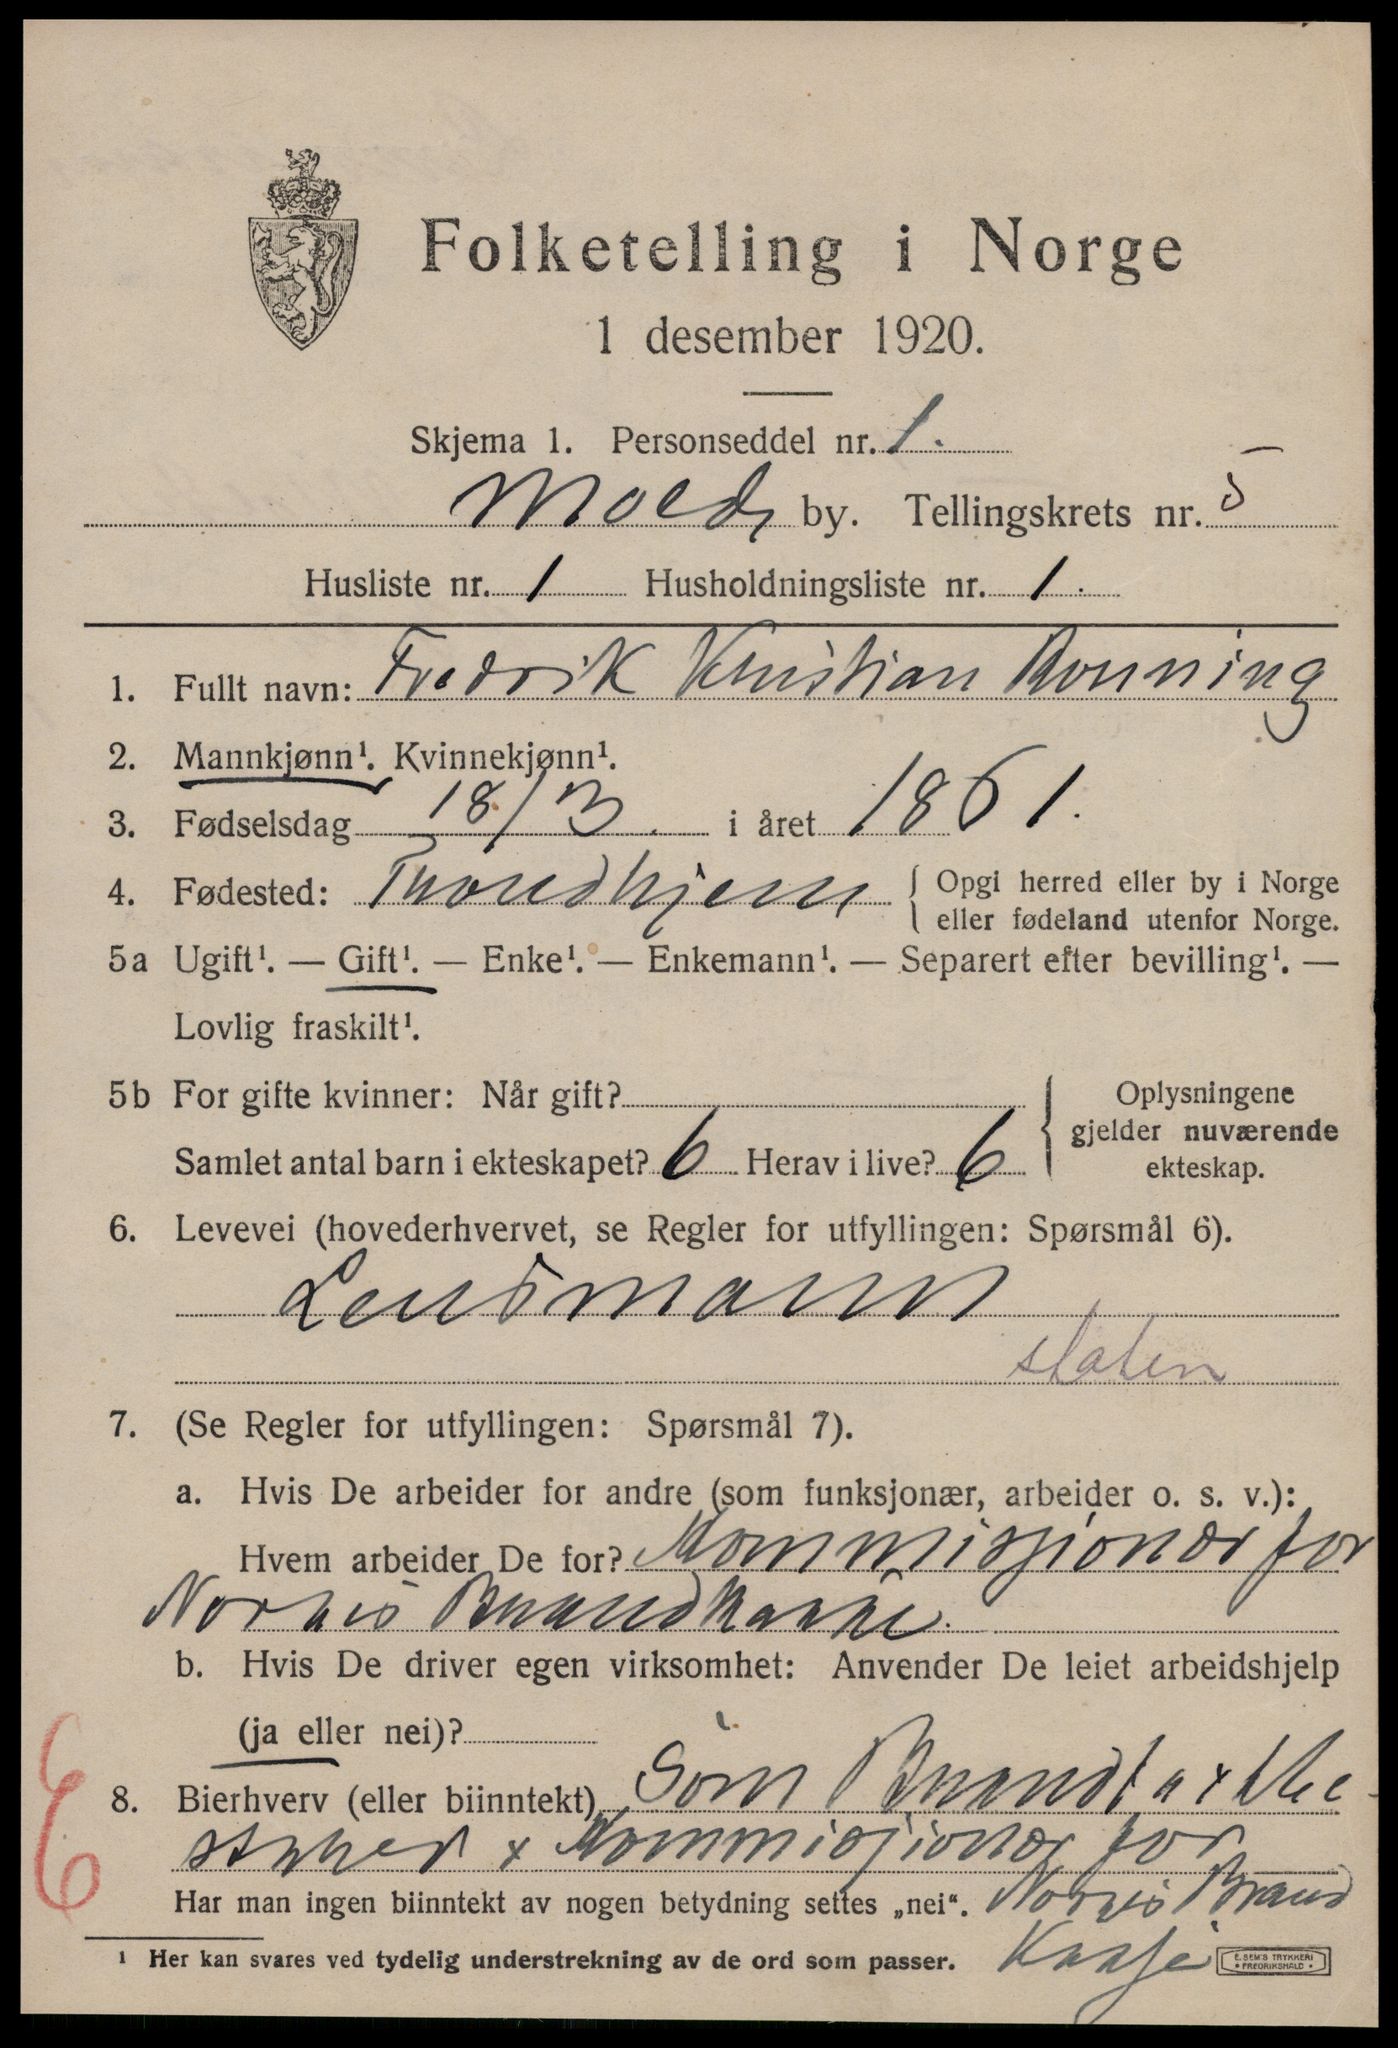 Folketelling i Norge
1 desember 1920.
Skjema 1. Personseddel nr. 1.
Molde by. Tellingskrets nr. 5
Husliste nr. 1 Husholdningsliste nr. 1.
1. Fullt navn: Fredrik Kristian Rønning
2. Mannkjønn¹. Kvinnekjønn¹.
3. Fødselsdag 18/3. i året 1861.
4. Fødested: Trondhjem { Opgi herred eller by i Norge
eller fødeland utenfor Norge.
5a Ugift¹. — Gift¹. — Enke¹. — Enkemann¹. — Separert efter bevilling¹. —
Lovlig fraskilt¹.
5b For gifte kvinner: Når gift?
Samlet antal barn i ekteskapet? 6 Herav i live? 6
{ Oplysningene
gjelder nuværende
ekteskap.
6. Levevei (hovederhvervet, se Regler for utfyllingen: Spørsmål 6).
Lensmann
staten
7. (Se Regler for utfyllingen: Spørsmål 7).
a. Hvis De arbeider for andre (som funksjonær, arbeider o. s. v.):
Hvem arbeider De for? Kommissjonær for
Norges Brandkasse.
b. Hvis De driver egen virksomhet: Anvender De leiet arbeidshjelp
(ja eller nei)?
8. Bierhverv (eller biinntekt) Som Brandtakst Be-
styrer x Kommissjonær for
Har man ingen biinntekt av nogen betydning settes „nei“. Norges Brand
Kasse
¹ Her kan svares ved tydelig understrekning av de ord som passer.
E. SEM'S TRYKKERI
FREDRIKSHALD
E